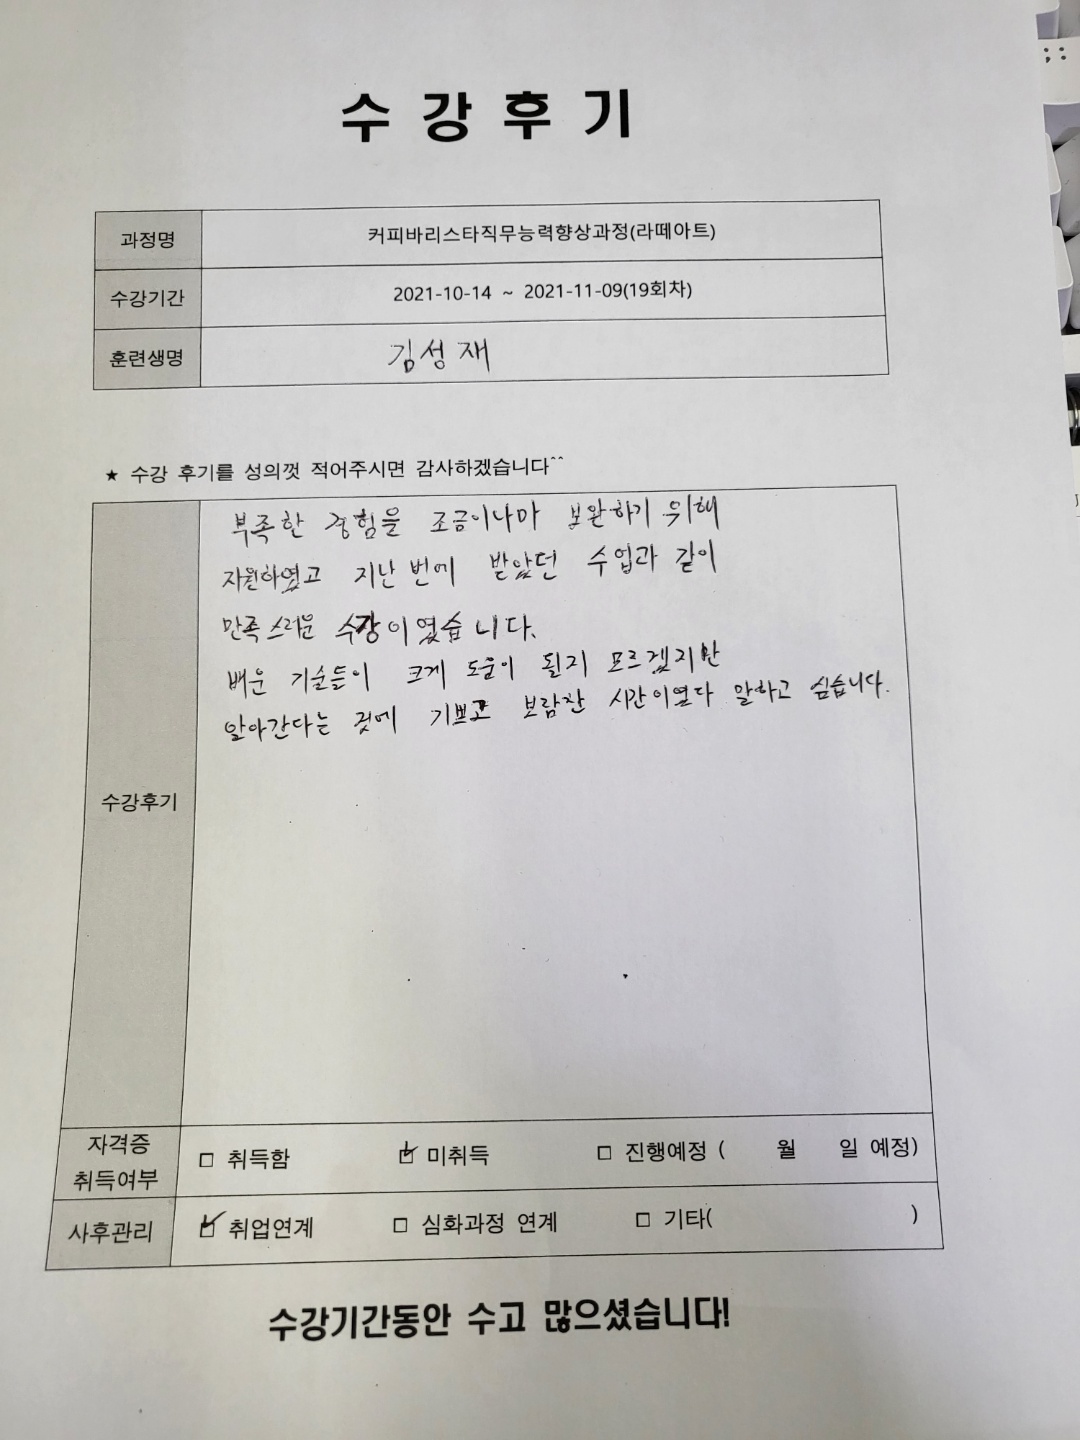 수 강 후 기
과정명 커피바리스타직무능력향상과정(라떼아트)
수강기간 2021-10-14 ~ 2021-11-09(19회차)
훈련생명 김성재
★ 수강 후기를 성의껏 적어주시면 감사하겠습니다^^
부족한 경험을 조금이나마 보완하기 위해
지원하였고 지난 번에 받았던 수업과 같이
만족스러운 수강이였습니다.
배운 기술들이 크게 도움이 될지 모르겠지만
알아간다는 것에 기쁘고 보람찬 시간이였다 말하고 싶습니다.
수강후기
자격증
취득여부
□ 취득함 ☑ 미취득 □ 진행예정 ( 월 일 예정)
사후관리 ☑ 취업연계 □ 심화과정 연계 □ 기타( )
수강기간동안 수고 많으셨습니다!